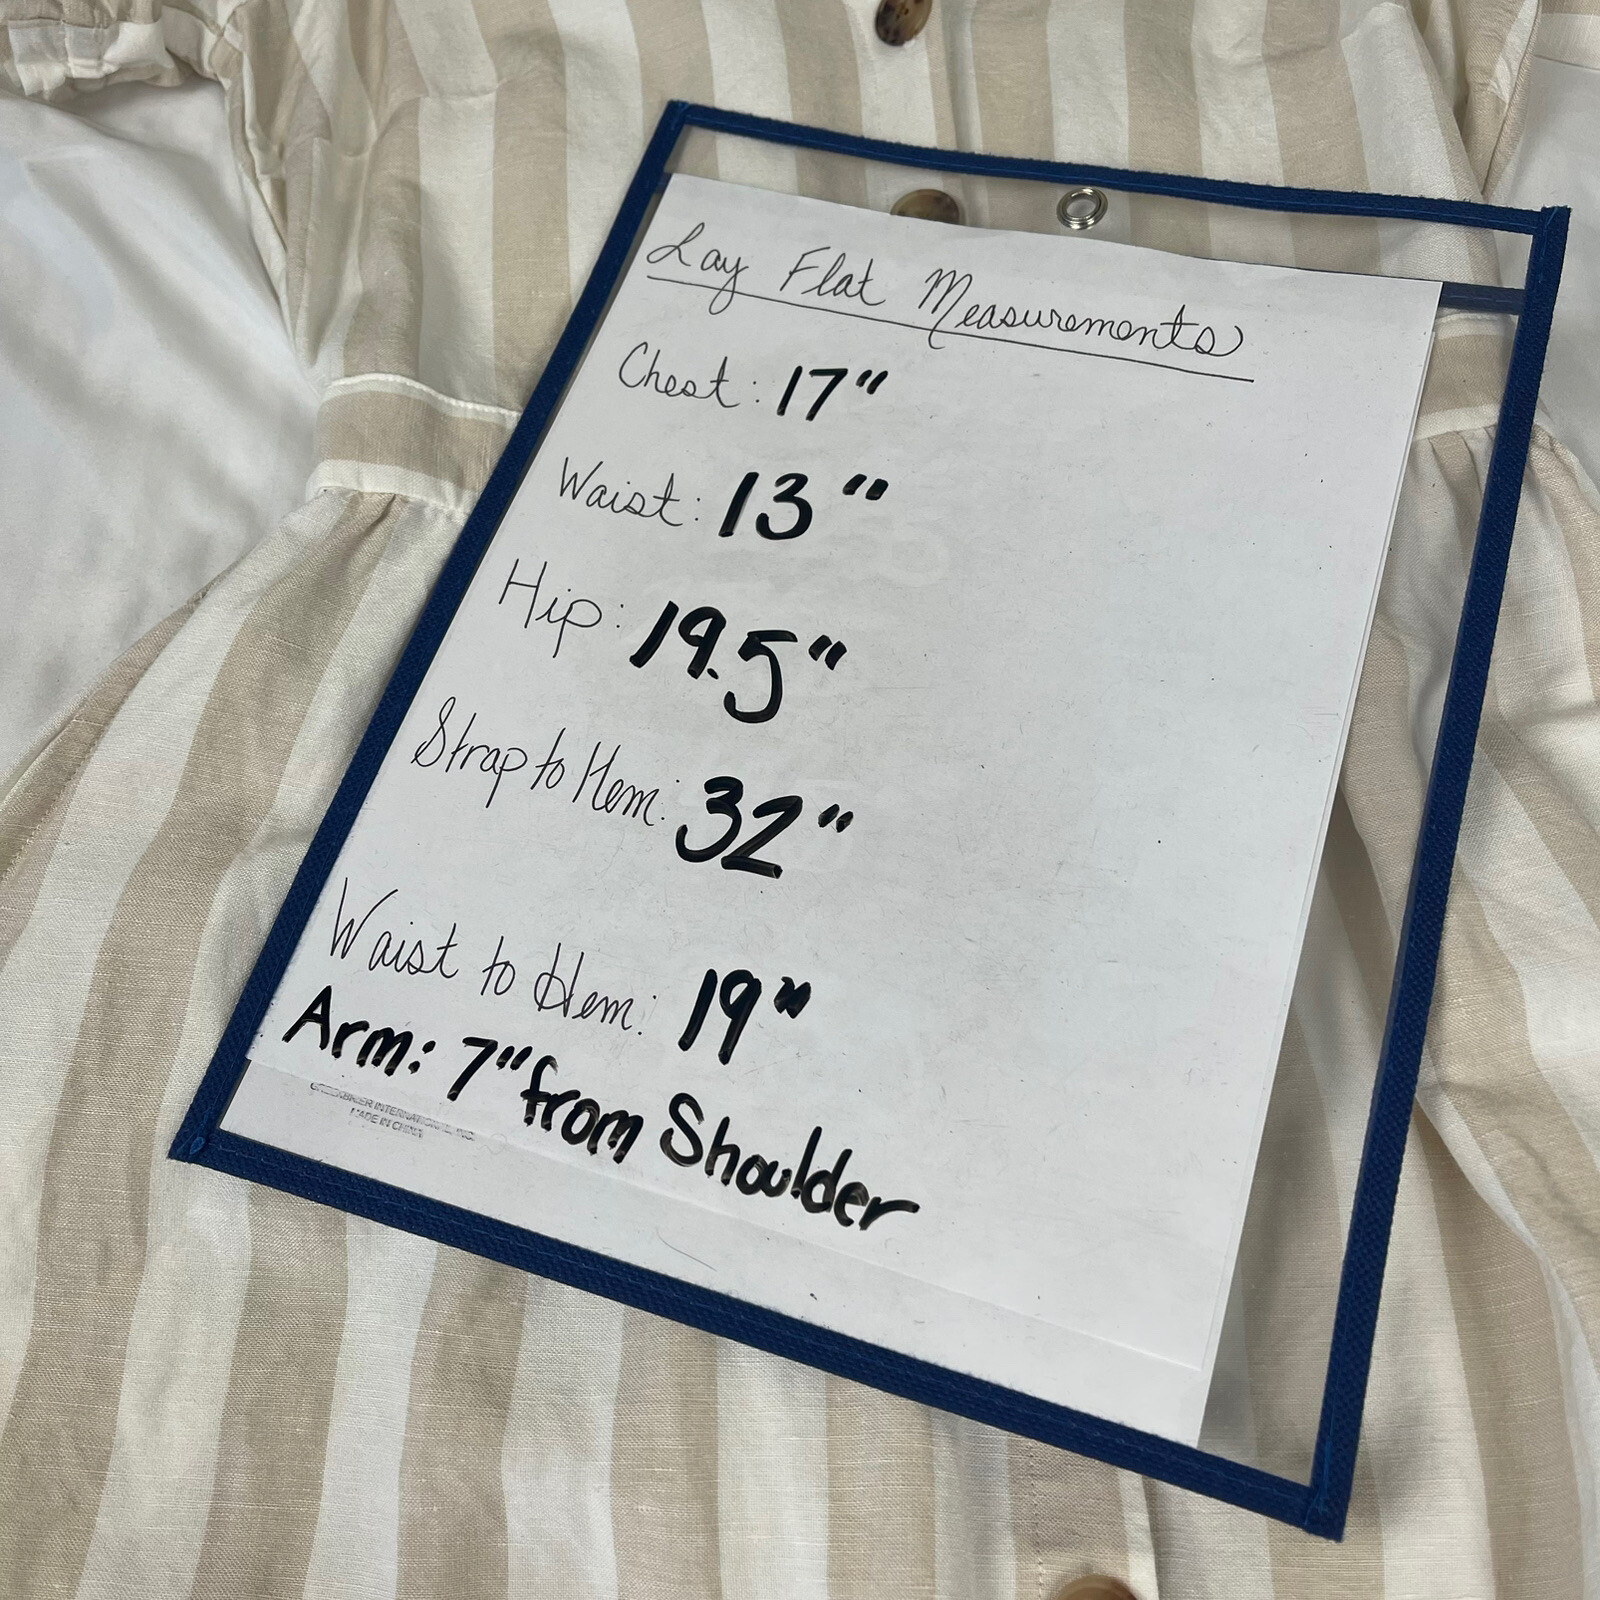 Lay Flat Measurements
Chest: 17"
Waist: 13"
Hip: 19.5"
Strap to Hem: 32"
Waist to Hem: 19"
Arm: 7" from Shoulder
GREENBRIER INTERNATIONAL, INC.
MADE IN CHINA